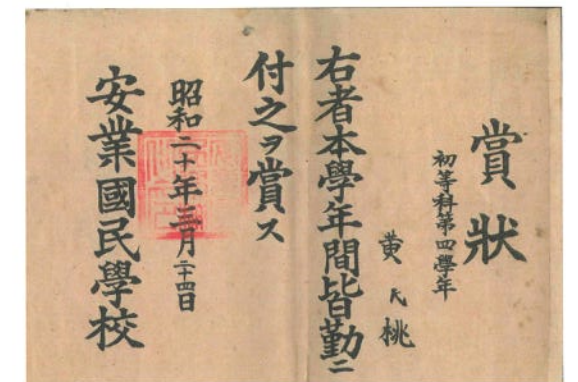 賞狀
初等科第四學年
黄氏桃
右者本學年間皆勤ニ
付之ヲ賞ス
昭和二十年三月二十四日
安業國民學校